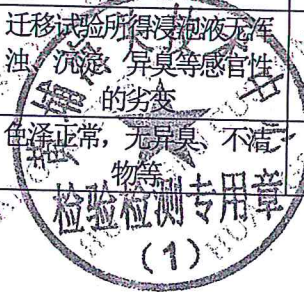 迁移试验所得浸泡液无浑
浊、沉淀、异臭等感官性
的劣变
色泽正常，无异臭、不洁
物等
检验检测专用章
(1)